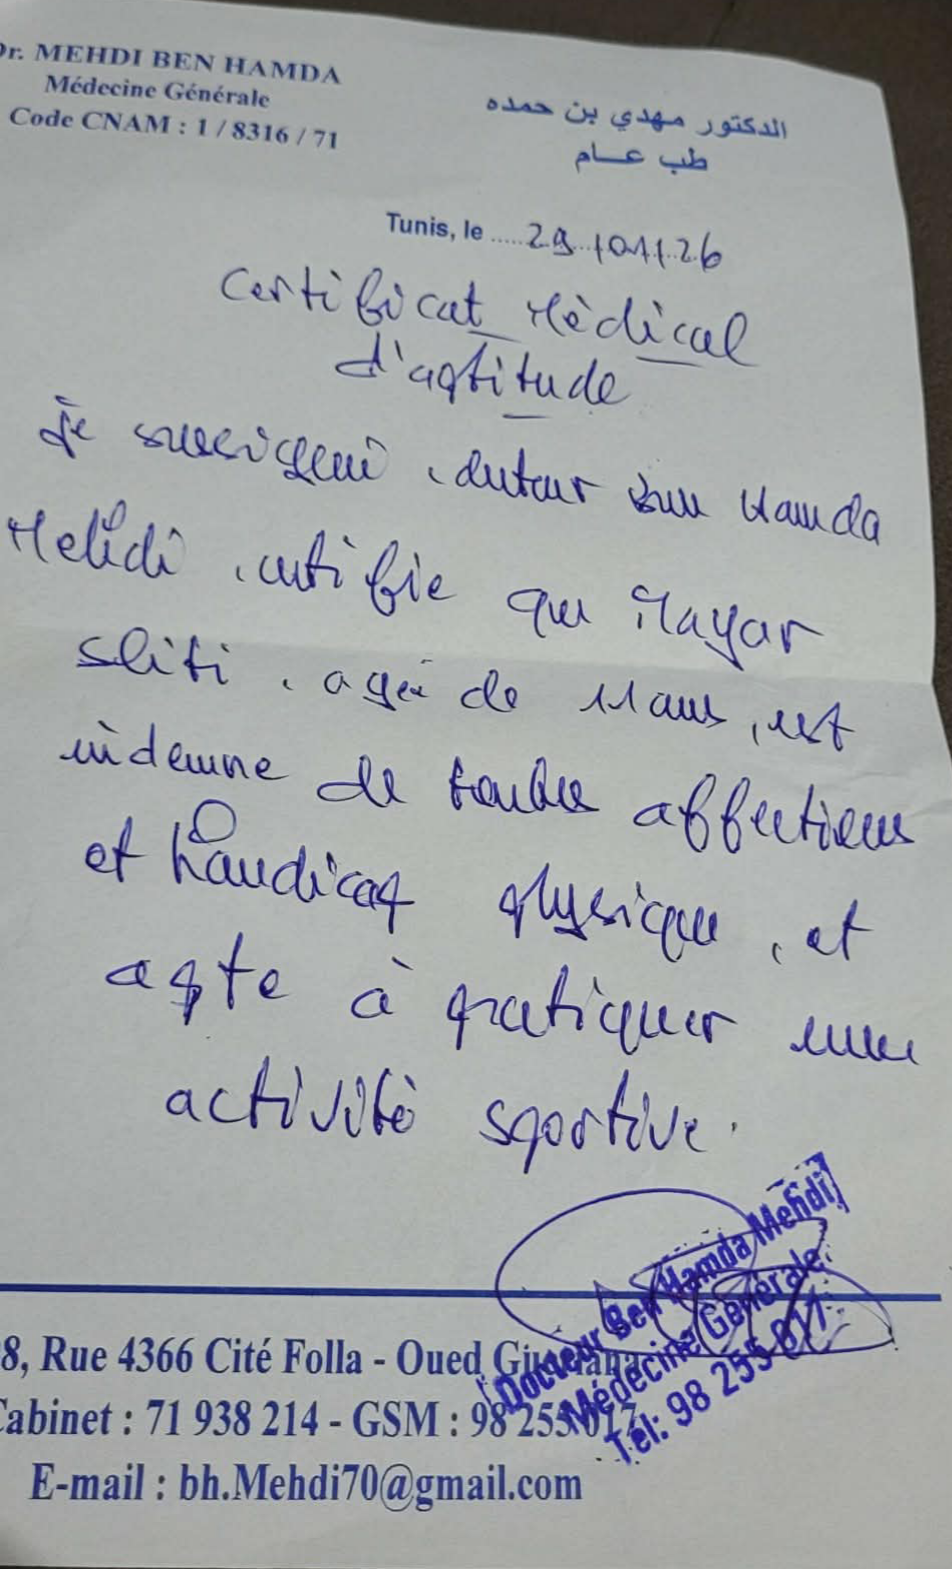 Dr. MEHDI BEN HAMDA
Médecine Générale
Code CNAM : 1 / 8316 / 71
الدكتور مهدي بن حمده
طب عــام
Tunis, le ..... 29/01/26
Certificat Médical
d'aptitude
Je soussigné, docteur Ben Hamda
Mehdi, certifie que Mayar
Sliti, agée de 11 ans, est
indemne de toutes affections
et handicap physique, et
apte à pratiquer une
activité sportive.
Docteur Ben Hamda Mehdi
Médecine Générale
Tél: 98 255 017
8, Rue 4366 Cité Folla - Oued
Cabinet : 71 938 214 - GSM : 98 255 017
E-mail : bh.Mehdi70@gmail.com